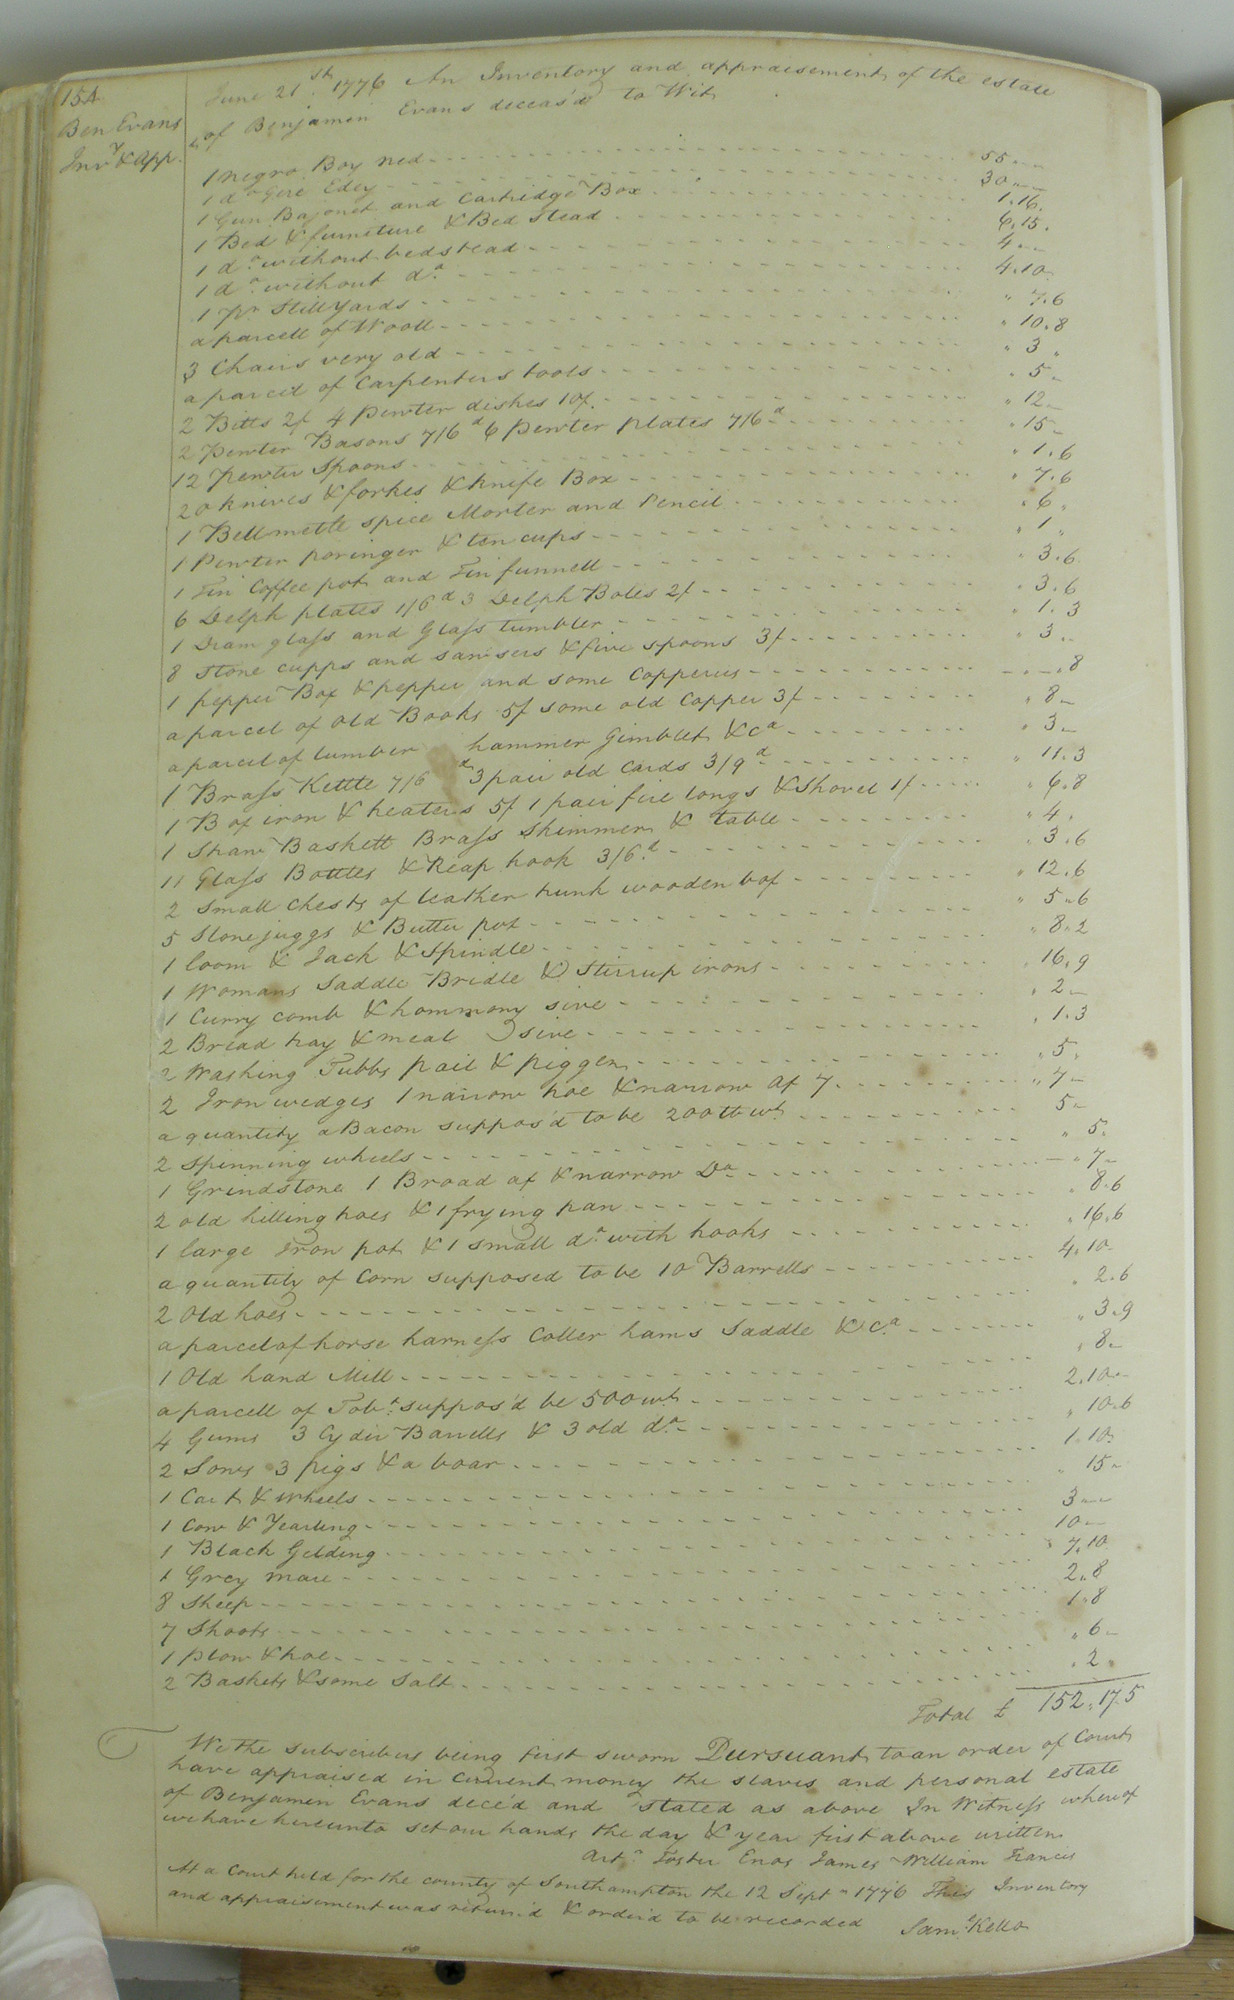 154
Ben Evans
Inv.y & App.
June 21st 1776 An Inventory and appraisement of the estate
of Benjamin Evans deceas'd to Wit
1 negro Boy Ned 55
1 do Gire Edey 30
1 Gun Bajonet and Cartridge Box 1.16.
1 Bed & furniture & Bed stead 6.15.
1 do without bedstead 4
1 do without do 4.10
1 pr Stillyards " 7.6
a parcell of Wooll " 10.8
3 Chairs very old " 3 "
a parcel of Carpenters tools " 5
2 Bitts 2/ 4 Pewter dishes 10/. " 12
2 Pewter Basons 7/6d 6 Pewter plates 7/6d " 15
12 Pewter Spoons " 1.6
20 knives & forkes & knife Box " 7.6
1 Bellmettle spice Morter and Pencil " 6 "
1 Pewter poringer & ten cups " 1 "
1 Tin Coffee pot and Tin funnell " 3.6
6 Delph plates 1/6d 3 Delph Boles 2/ " 3.6
1 Dram glass and Glass tumbler " 1.3
8 Stone cupps and sawsers & five spoons 3/ " 3
1 pepper Box & pepper and some Copperus " 8
a parcel of Old Books 5/ some old Copper 3/ " 8
a parcel of lumber hammer Gimblet &ca " 3
1 Brass Kettle 7/6d 3 pair old Cards 3/9d " 11.3
1 Box iron & heaters 5/ 1 pair fire tongs & Shovel 1/ " 6.8
1 Straw Baskett Brass Skimmer & table " 4.
11 Glass Bottles & Reap hook 3/6d " 3.6
2 Small Chests of leather trunk wooden bof " 12.6
5 Stone juggs & Butter pot " 5.6
1 loom & Jack & Spindle " 8.2
1 Womans Saddle Bridle & Stirrup irons " 16.9
1 Curry comb & hommony sive " 2
2 Bread tray & meal sive " 1.3
2 Washing Tubbs pail & piggen " 5.
2 Iron wedges 1 narrow hoe & narrow ax 7. " 7
a quantity a Bacon suppos'd to be 200 tt wt 5
2 Spinning wheels " 5.
1 Grindstone 1 Broad ax & narrow Do " 7
2 old hilling hoes & 1 frying pan " 8.6
1 large Iron pot & 1 small do with hooks " 16.6
a quantity of Corn supposed to be 10 Barrells 4.10
2 Old hoes " 2.6
a parcel of horse harness Coller hams Saddle &ca " 3.9
1 Old hand Mill " 8
a parcell of Tobo suppos'd be 500 wt 2.10
4 Gums 3 Cyder Barrells & 3 old do " 10.6
2 Sows 3 pigs & a boar 1.10
1 Cart & Wheels " 15
1 Cow & Yearling 3
1 Black Gelding 10
1 Grey mare 7.10
8 Sheep 2.8
7 Shoots 1.8
1 plow & hoe " 6
2 Baskets & some Salt " 2
Total £ 152.17.5
We the subscribers being first sworn Pursuant to an order of Court
have appraised in current money the slaves and personal estate
of Benjamin Evans dece'd and stated as above In Witness whereof
we have hereunto set our hands the day & year first above written
Art.r Foster Enos James William Francis
At a Court held for the county of Southampton the 12 Septr 1776 This Inventory
and appraisement was return'd & order'd to be recorded Saml Kello